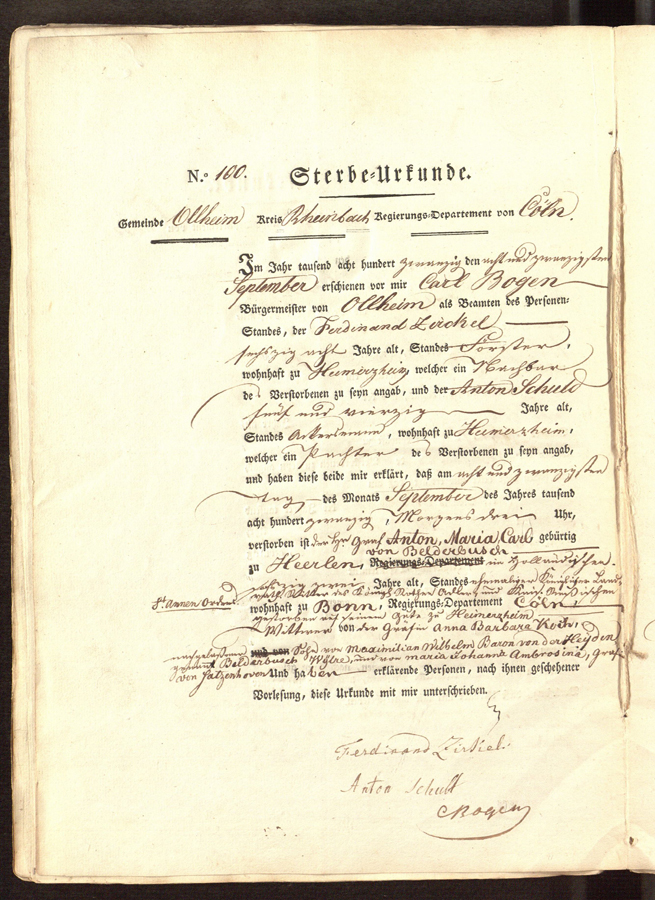 N.º 100. Sterbe-Urkunde.
Gemeinde Ollheim Kreis Rheinbach Regierungs-Departement von Cöln.
Im Jahr tausend acht hundert zwanzig den acht und zwanzigsten
September erschienen vor mir Carl Bogen
Bürgermeister von Ollheim als Beamten des Personen-
Standes, der Ferdinand Zirckel
sechszig acht Jahre alt, Standes Förster,
wohnhaft zu Heimerzheim, welcher ein Nachbar
des Verstorbenen zu seyn angab, und der Anton Schuld
fünf und vierzig Jahre alt,
Standes Ackersmann, wohnhaft zu Heimerzheim,
welcher ein Pachter des Verstorbenen zu seyn angab,
und haben diese beide mir erklärt, daß am acht und zwanzigsten
tag des Monats September des Jahres tausend
acht hundert zwanzig, Morgens drei Uhr,
verstorben ist der Hr Graf Anton, Maria Carl gebürtig
von Belderbusch
zu Heerlen, Regierungs-Departement im Holländischen.
sechszig zwei Jahre alt, Standes ehemaliger Königlicher Land-
rath Ritter des Königl Rothen Ordens und Kais. Russischen
St Annen Ordens. wohnhaft zu Bonn, Regierungs-Departement Cöln,
gestorben auf seinem Gute zu Heimerzheim
Wittwer von der Gräfin Anna Barbara
Sohn von Maximilian Wilhelm Baron von der Heyden
genannt Belderbusch und von Maria Johanna Ambrosina, Gräf
von Satzenhoven Und haben erklärende Personen, nach ihnen geschehener
Vorlesung, diese Urkunde mit mir unterschrieben.
Ferdinand Zirkel
Anton Schult
CBogen